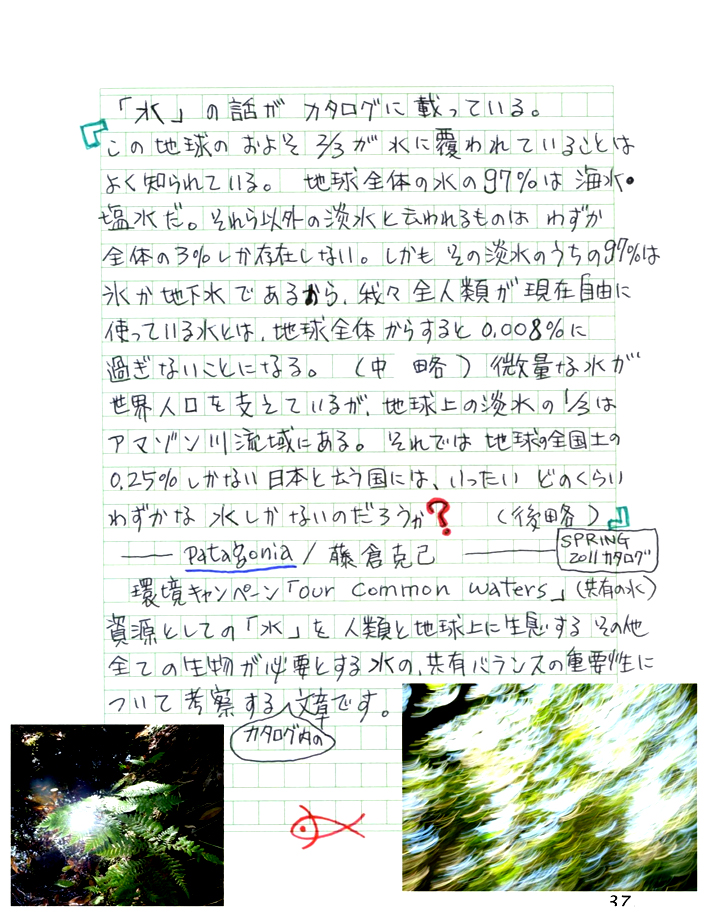 「水」の話が カタログに 載っている。
『この地球の およそ 2/3が 水に覆われていることは
よく知られている。 地球全体の水の97%は 海水・
塩水だ。それら以外の淡水と云われるものは わずか
全体の3%しか存在しない。しかも その淡水のうちの97%は
氷か地下水であるから、我々全人類が現在自由に
使っている水とは、地球全体からすると 0.008%に
過ぎないことになる。 (中 略) 微量な水が
世界人口を支えているが、地球上の淡水の1/3は
アマゾン川流域にある。 それでは 地球の全国土の
0.25%しかない日本と云う国には、いったい どのくらい
わずかな 水しかないのだろうか? (後略)』
── patagonia / 藤倉克己 ──
SPRING
2011カタログ
環境キャンペーン「our common waters」(共有の水)
資源としての「水」を 人類と地球上に生息する その他
全ての生物が必要とする水の、共有バランスの重要性に
ついて考察する文章です。
カタログ内の
37.